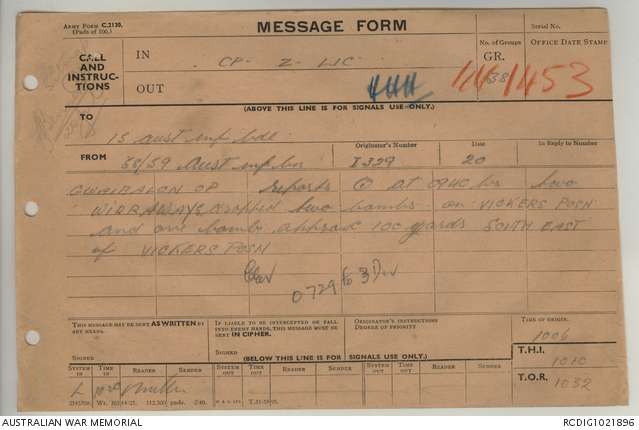 ARMY FORM C.2130.
(Pads of 100.)
MESSAGE FORM
Serial No.
CALL
AND
INSTRUC-
TIONS
IN
CP - Z - LJC
No. of Groups
GR.
38
OFFICE DATE STAMP
1453
OUT
(ABOVE THIS LINE IS FOR SIGNALS USE ONLY.)
TO
15 Aust inf bde
FROM
58/59 Aust inf bn
Originator's Number
I 329
Date
20
In Reply to Number
OP reports at 0940 hrs two
WIRRAWAYS dropped two bombs on VICKERS POSN
and one bomb approx 100 yards SOUTH EAST
of VICKERS POSN
0729 to 3 Div
THIS MESSAGE MAY BE SENT AS WRITTEN BY
ANY MEANS.
SIGNED
IF LIABLE TO BE INTERCEPTED OR FALL
INTO ENEMY HANDS, THIS MESSAGE MUST BE
SENT IN CIPHER.
SIGNED
ORIGINATOR'S INSTRUCTIONS
DEGREE OF PRIORITY
TIME OF ORIGIN.
1006
(BELOW THIS LINE IS FOR SIGNALS USE ONLY.)
T.H.I.
1010
SYSTEM IN
TIME IN
READER
SENDER
SYSTEM OUT
TIME OUT
READER
SENDER
SYSTEM OUT
TIME OUT
READER
SENDER
T.O.R.
1032
L
AUSTRALIAN WAR MEMORIAL
RCDIG1021896